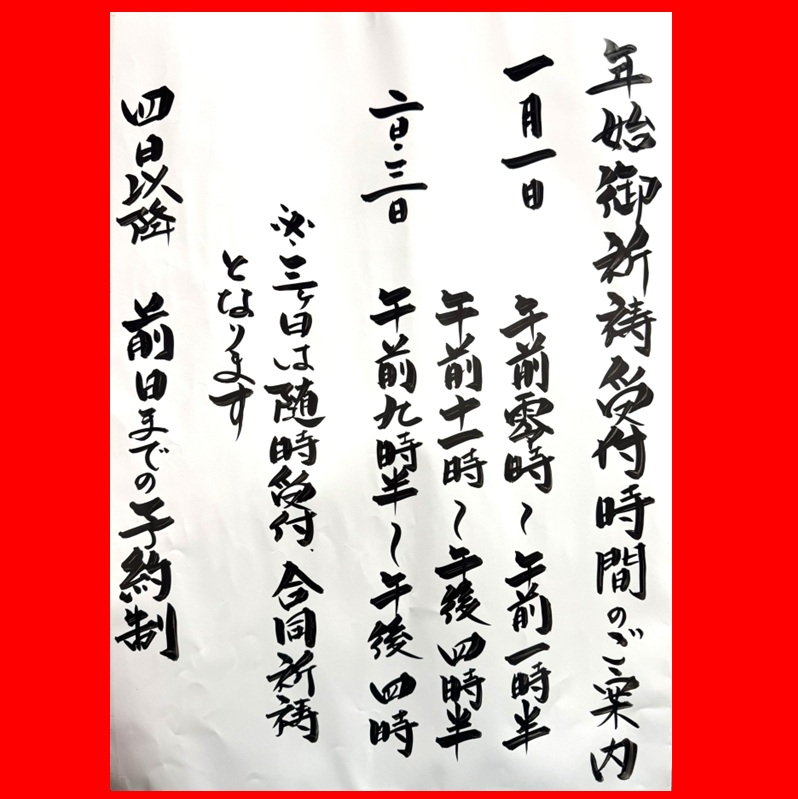 年始御祈祷受付時間のご案内
一月一日 午前零時〜午前一時半
午前十一時〜午後四時半
二日・三日 午前九時半〜午後四時
※三ヶ日は随時受付、合同祈祷
となります
四日以降 前日までの予約制